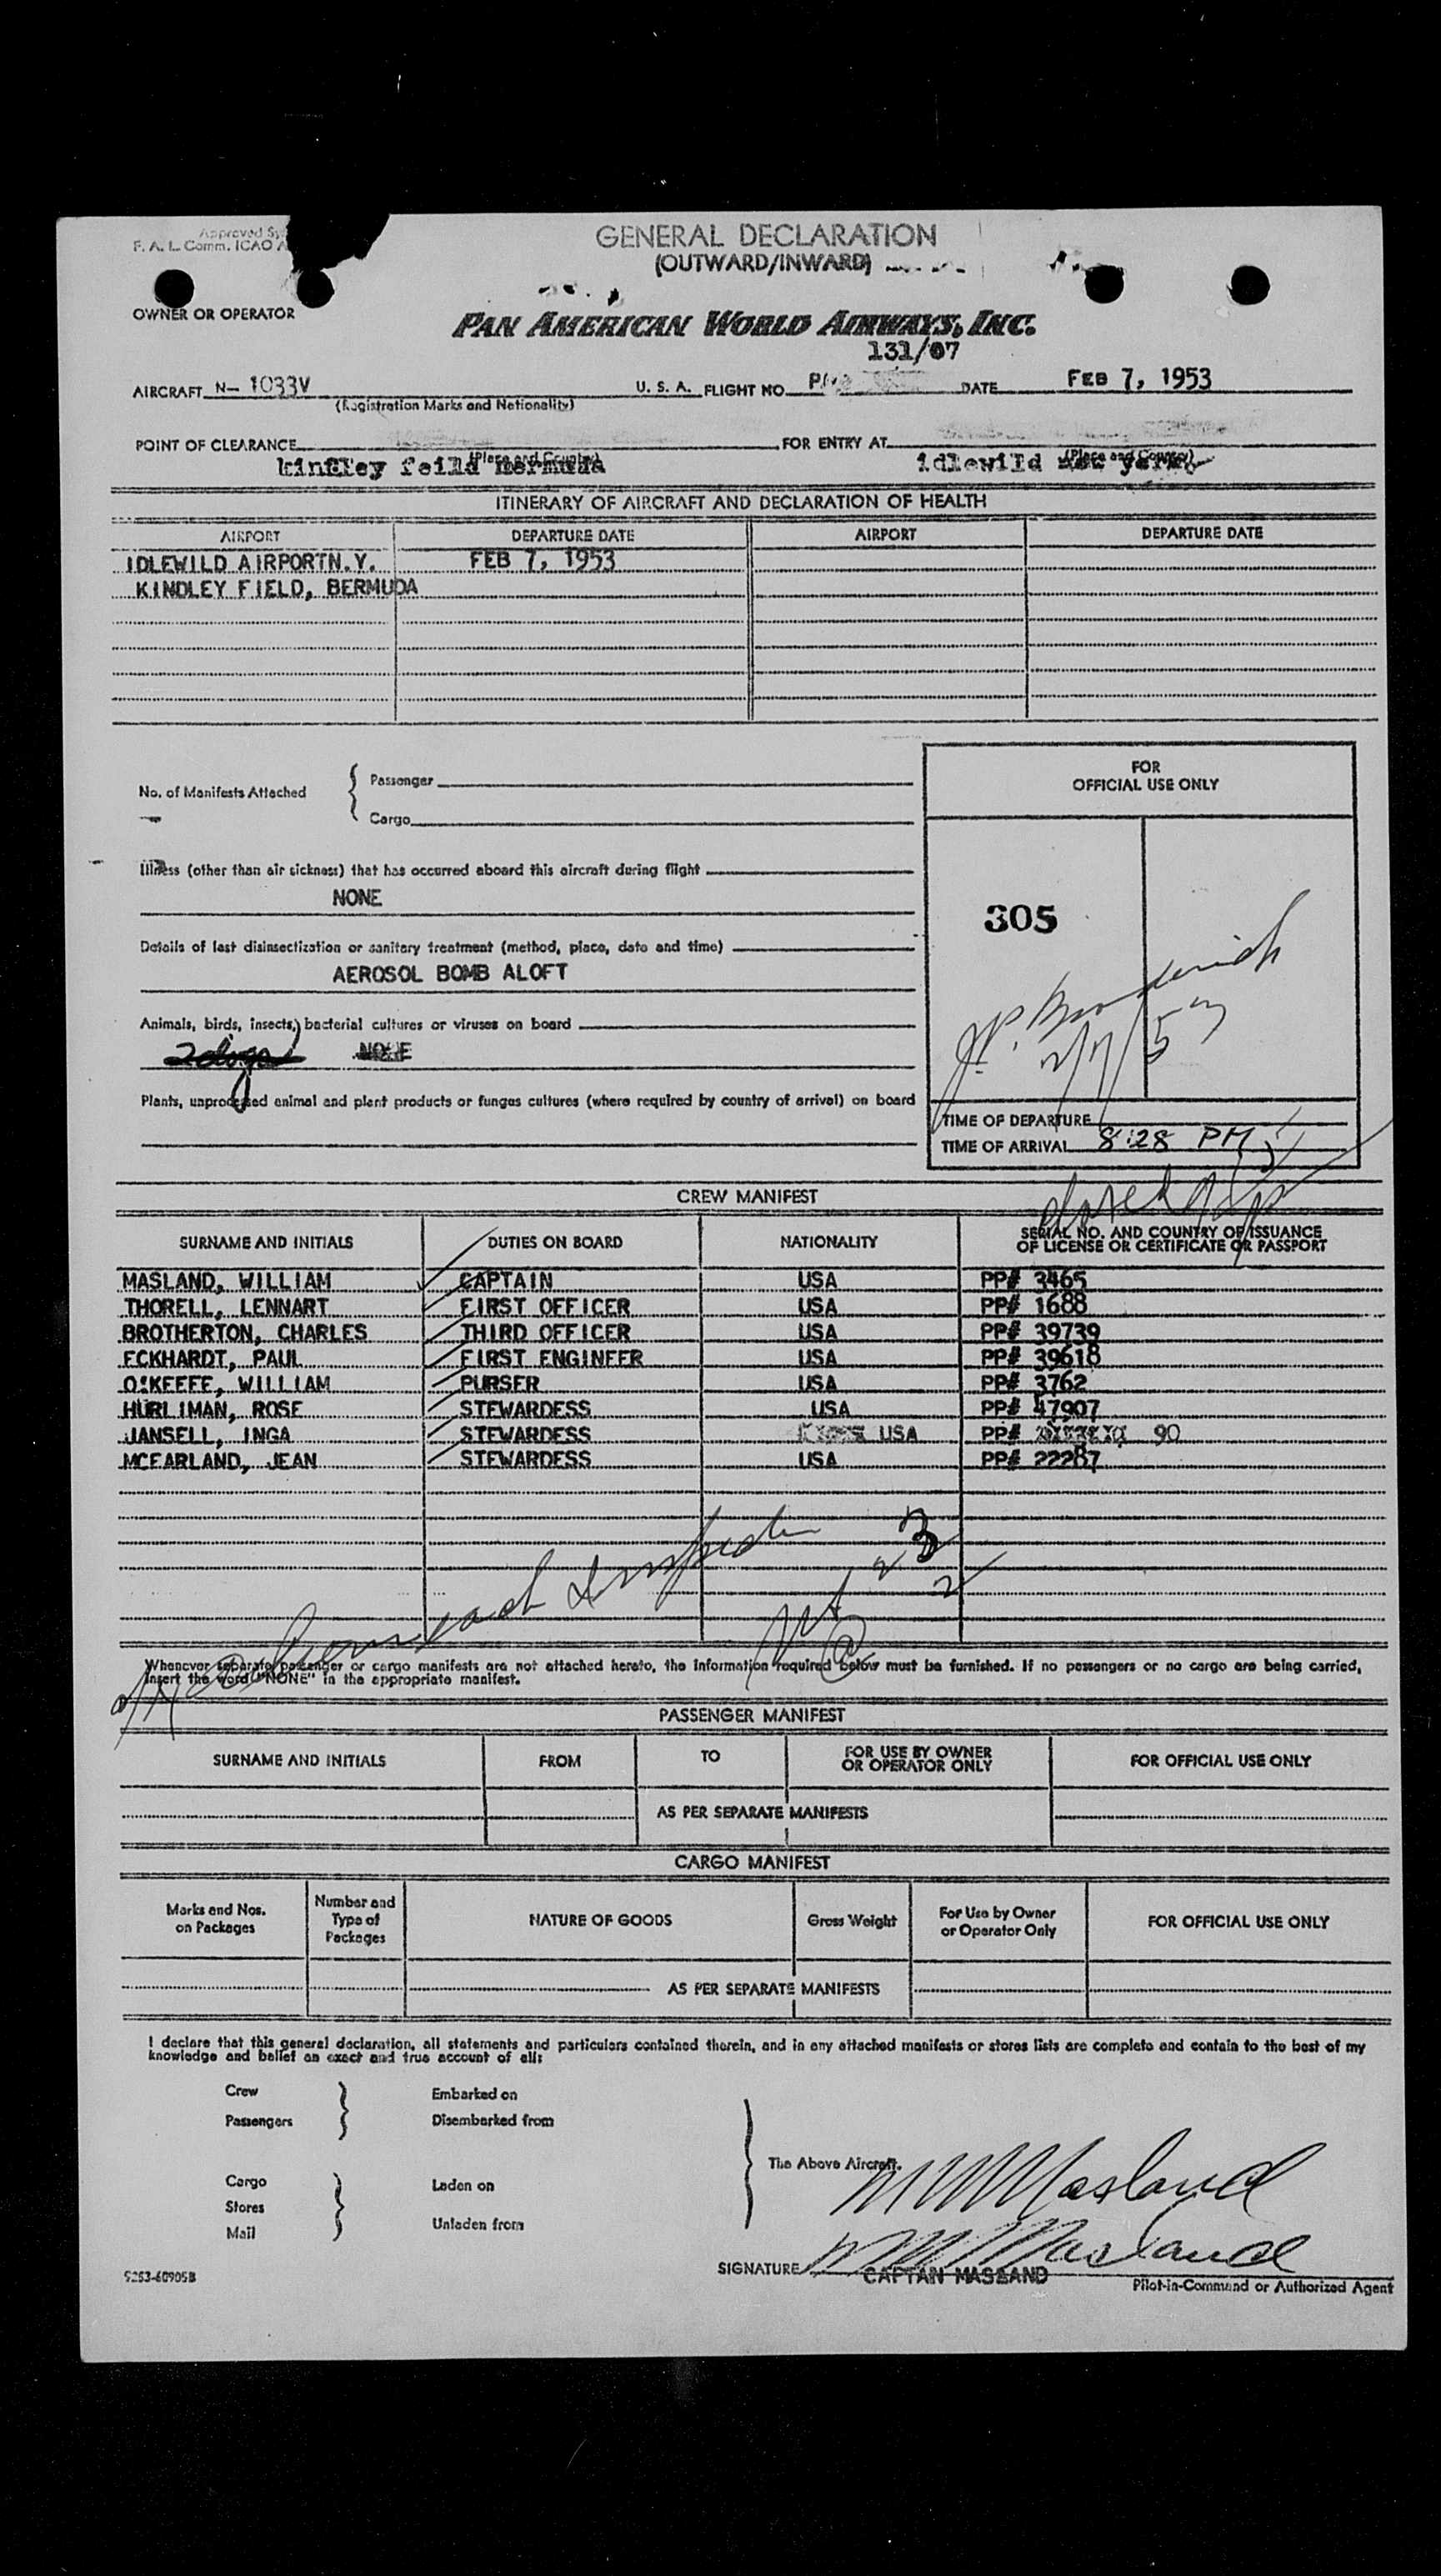 Approved
F. A. L. Comm. ICAO
GENERAL DECLARATION
(OUTWARD/INWARD)
OWNER OR OPERATOR
PAN AMERICAN WORLD AIRWAYS, INC.
131/07
AIRCRAFT N- 1033V U. S. A. FLIGHT NO. DATE FEB 7, 1953
(Registration Marks and Nationality)
POINT OF CLEARANCE FOR ENTRY AT
(Place and Country) (Place and Country)
kindley feild bermuda idlewild new york
ITINERARY OF AIRCRAFT AND DECLARATION OF HEALTH
AIRPORT DEPARTURE DATE AIRPORT DEPARTURE DATE
IDLEWILD AIRPORTN.Y. FEB 7, 1953
KINDLEY FIELD, BERMUDA
FOR
OFFICIAL USE ONLY
No. of Manifests Attached { Passenger
Cargo
Illness (other than air sickness) that has occurred aboard this aircraft during flight
NONE
305
Details of last disinsectization or sanitary treatment (method, place, date and time)
AEROSOL BOMB ALOFT
Animals, birds, insects, bacterial cultures or viruses on board
2 dogs NONE
2/7/53
Plants, unprocessed animal and plant products or fungus cultures (where required by country of arrival) on board
TIME OF DEPARTURE
TIME OF ARRIVAL 8:28 PM
CREW MANIFEST
SURNAME AND INITIALS DUTIES ON BOARD NATIONALITY SERIAL NO. AND COUNTRY OF ISSUANCE
OF LICENSE OR CERTIFICATE OR PASSPORT
MASLAND, WILLIAM CAPTAIN USA PP# 3465
THORELL, LENNART FIRST OFFICER USA PP# 1688
BROTHERTON, CHARLES THIRD OFFICER USA PP# 39739
ECKHARDT, PAUL FIRST ENGINEER USA PP# 39618
O'KEEFE, WILLIAM PURSER USA PP# 3762
HURLIMAN, ROSE STEWARDESS USA PP# 47907
JANSELL, INGA STEWARDESS USA PP# 90
MCFARLAND, JEAN STEWARDESS USA PP# 22287
Whenever separate passenger or cargo manifests are not attached hereto, the information required below must be furnished. If no passengers or no cargo are being carried,
insert the word "NONE" in the appropriate manifest.
PASSENGER MANIFEST
SURNAME AND INITIALS FROM TO FOR USE BY OWNER
OR OPERATOR ONLY FOR OFFICIAL USE ONLY
AS PER SEPARATE MANIFESTS
CARGO MANIFEST
Marks and Nos.
on Packages Number and
Type of
Packages NATURE OF GOODS Gross Weight For Use by Owner
or Operator Only FOR OFFICIAL USE ONLY
AS PER SEPARATE MANIFESTS
I declare that this general declaration, all statements and particulars contained therein, and in any attached manifests or stores lists are complete and contain to the best of my
knowledge and belief an exact and true account of all:
Crew Embarked on
Passengers Disembarked from
The Above Aircraft.
Cargo Laden on
Stores
Mail Unladen from
WMMasland
WMMasland
SIGNATURE CAPTAN MASLAND
5253-60905B Pilot-in-Command or Authorized Agent